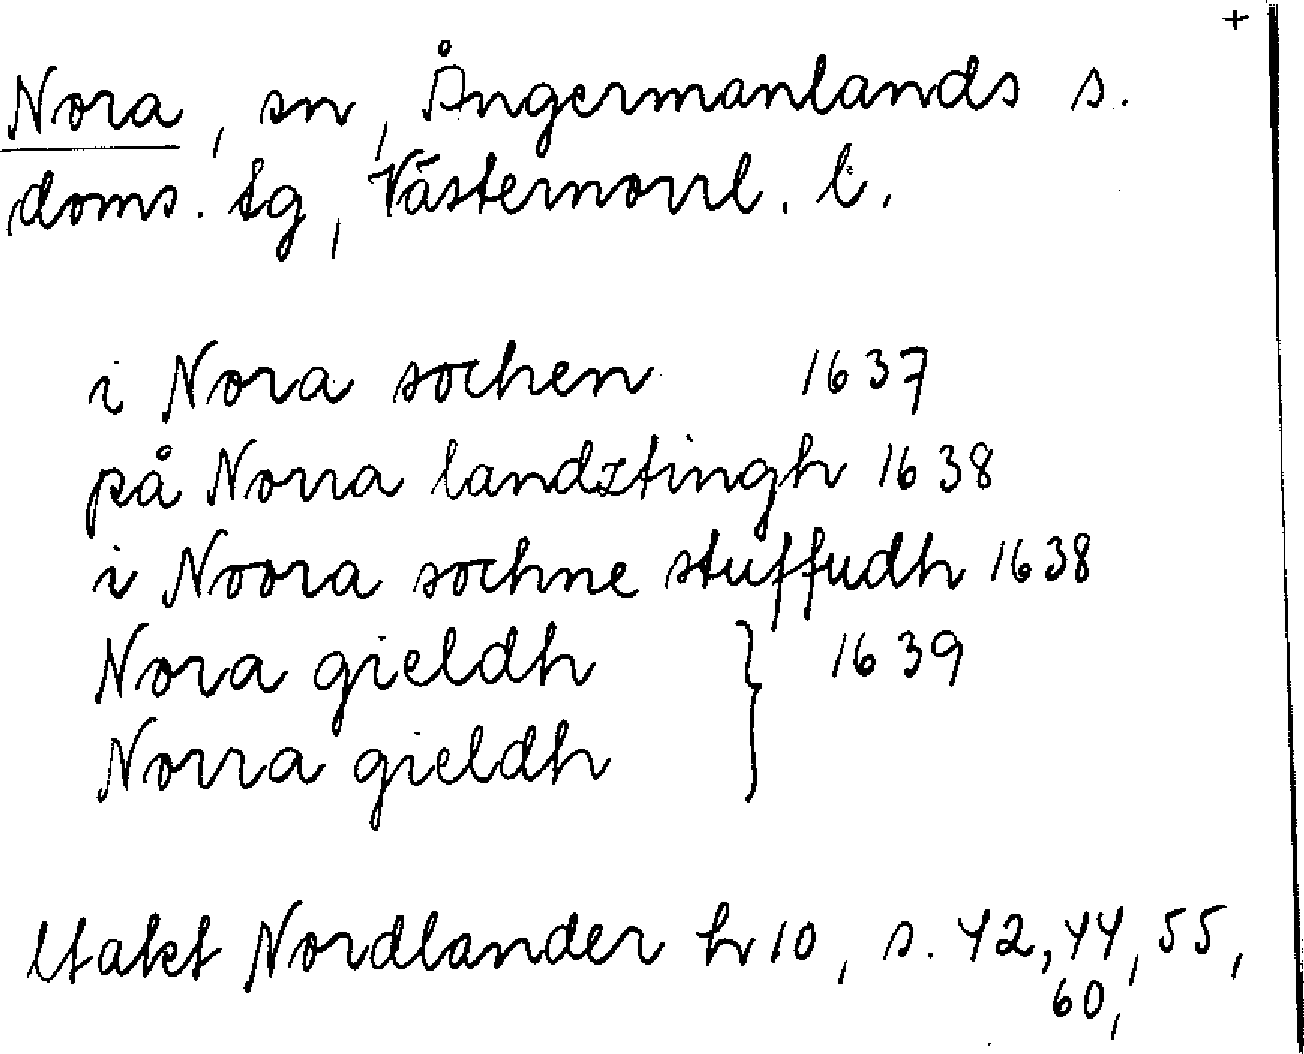 +
Nora, sn, Ångermanlands s.
doms. tg, Västernorrl. l.
i Nora sochen 1637
på Norra landztingh 1638
i Noora sochne stuffudh 1638
Nora gieldh } 1639
Norra gieldh
Utakt Nordlander h 10, s. 42, 44, 55,
60,